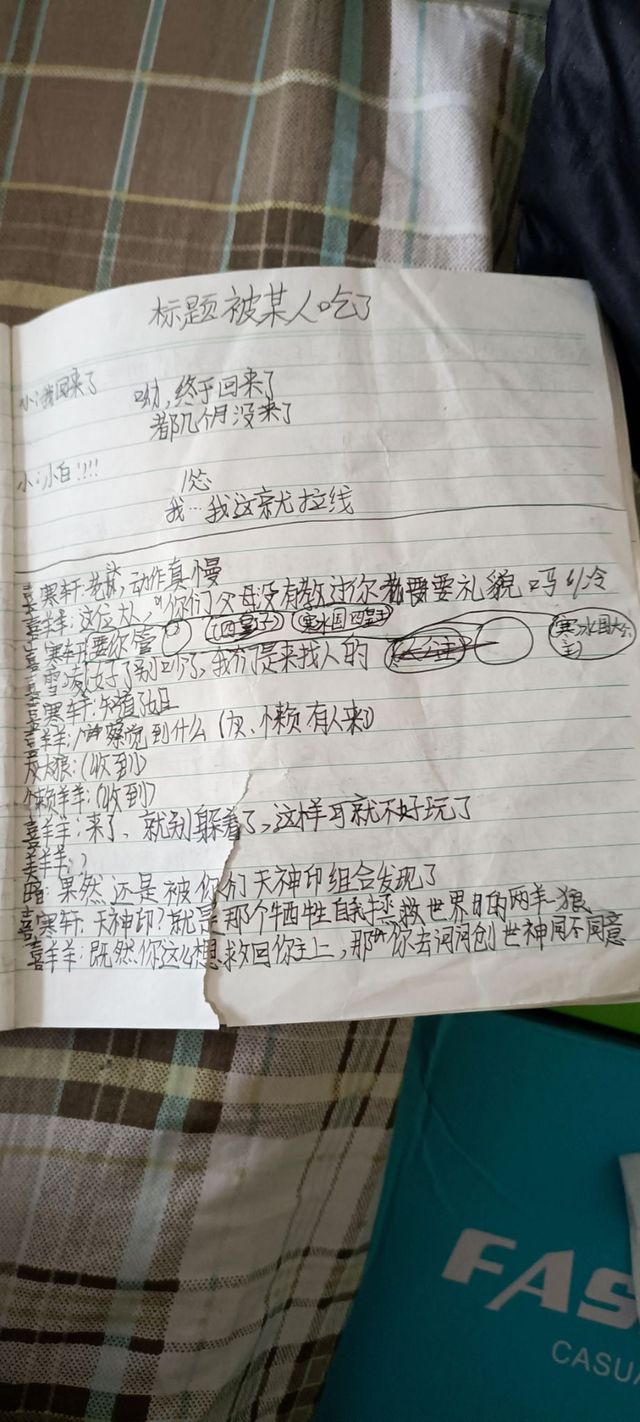 标题被某人吃了
小:我回来了
呦,终于回来了
都几个月没来了
小:小白!!!!
怂
我…我这就拉线
寒轩:老妖,动作真慢
喜羊羊:这位大人,你们父母没有教过你要礼貌吗 冷
寒轩:要你管 (四皇子) (寒冰国四皇子)
雪凝:好了别吵了,我们是来找人的 (大公主) (寒冰国大公主)
寒轩:知道了姐
喜羊羊:察觉到什么(灰、懒有人来)
灰太狼:(收到)
懒羊羊:(收到)
喜羊羊:来了、就别躲着了,这样可就不好玩了
美羊羊:
暗:果然还是被你们天神印组合发现了
寒轩:天神印?就是那个牺牲自我拯救世界的两羊一狼
喜羊羊:既然你这么想救回你主上,那你去问问创世神同不同意
FAS
CASUA